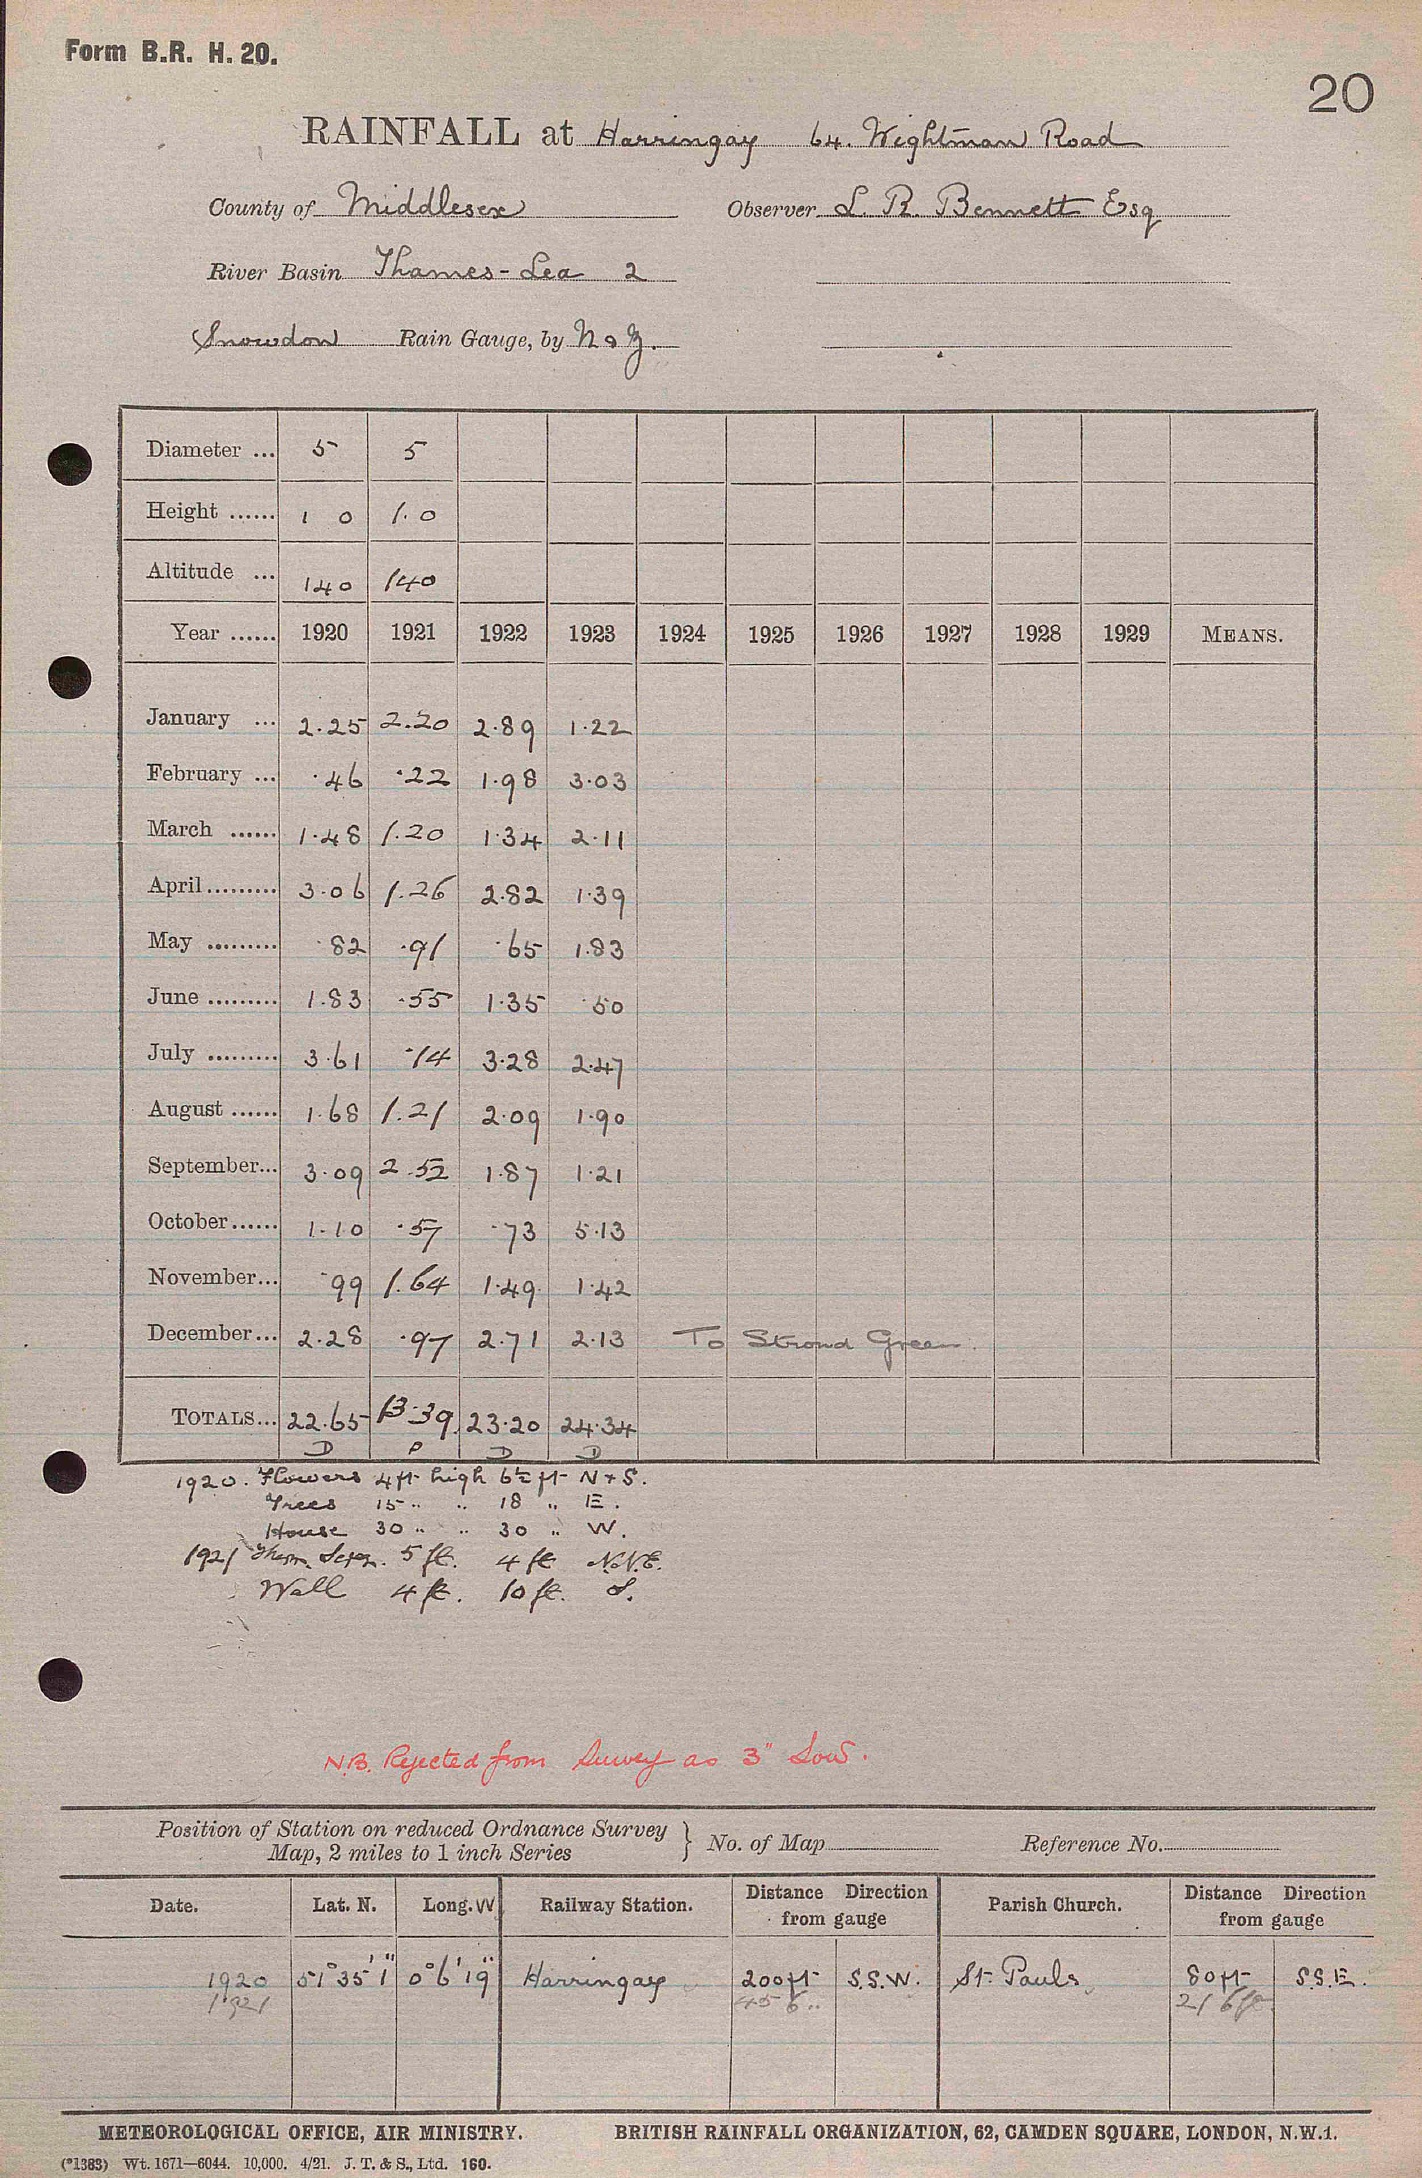 Form B.R. H. 20.
20
RAINFALL at Harringay 64. Wightman Road
County of Middlesex Observer L. R. Bennett Esq
River Basin Thames - Lea 2
Snowdon Rain Gauge, by N & Z.
Diameter ... 5 5
Height ...... 1 0 1.0
Altitude ... 140 140
Year ...... 1920 1921 1922 1923 1924 1925 1926 1927 1928 1929 MEANS.
January ... 2.25 2.20 2.89 1.22
February ... .46 .22 1.98 3.03
March ...... 1.48 1.20 1.34 2.11
April ......... 3.06 1.26 2.82 1.39
May ......... .82 .91 .65 1.83
June ......... 1.83 .55 1.35 .50
July ......... 3.61 .14 3.28 2.47
August ...... 1.68 1.21 2.09 1.90
September... 3.09 2.52 1.87 1.21
October ...... 1.10 .57 .73 5.13
November... .99 1.64 1.49 1.42
December ... 2.28 .97 2.71 2.13 To Stroud Green.
TOTALS... 22.65 13.39 23.20 24.34
D P D D
1920. Flowers 4 ft high 6½ ft N + S.
Trees 15 " " 18 " E.
House 30 " " 30 " W.
1921 Therm. Screen. 5 ft. 4 ft N.N.E.
Wall 4 ft. 10 ft. S.
N.B. Rejected from Survey as 3" Low.
Position of Station on reduced Ordnance Survey
Map, 2 miles to 1 inch Series } No. of Map Reference No.
Date. Lat. N. Long. W Railway Station. Distance Direction from gauge Parish Church. Distance Direction from gauge
1920 51° 35' 1" 0° 6' 19" Harringay 200 ft S.S.W. St. Pauls 80 ft S.S.E.
1921 456 " 216 ft.
METEOROLOGICAL OFFICE, AIR MINISTRY. BRITISH RAINFALL ORGANIZATION, 62, CAMDEN SQUARE, LONDON, N.W.1.
(*1383) Wt. 1671—6044. 10,000. 4/21. J. T. & S., Ltd. 160.